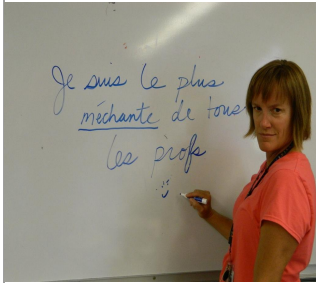 Je suis le plus
méchante de tous
les profs